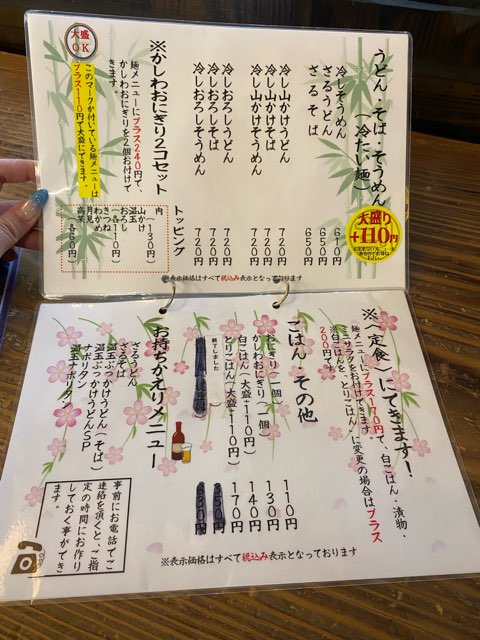 うどん・そば・そうめん
(冷たい麺)
大盛り
+110円
冷しそうめん 610円
ざるうどん 650円
ざるそば 650円
冷し山かけうどん 720円
冷し山かけそば 720円
冷し山かけそうめん 720円
冷しおろしうどん 720円
冷しおろしそば 720円
冷しおろしそうめん 720円
※かしわおにぎり2コセット
麺メニューにプラス240円で、
かしわおにぎりを2個お付けで
きます。
大盛
OK
このマークが付いている麺メニューは
プラス110円で大盛にできます。
トッピング
肉 (130円)
山かけ
温玉
おろし
きつね
(各110円)
わかめ
月見
高菜
各50円
※表示価格はすべて税込み表示となっております
※〈定食〉にできます!
麺メニューにプラス170円で、白ごはん・漬物・
ミニサラダをお付けできます。
※白ごはんを、とりごはんに変更の場合はプラス
20円です。
ごはん・その他
おにぎり(一個) 110円
かしわおにぎり(一個) 130円
白ごはん(大盛+110円) 140円
とりごはん(大盛+110円) 170円
終了しました
お持ちかえりメニュー
ざるうどん
ざるそば
温玉ぶっかけうどん(そば)
温玉ぶっかけうどんSP
ナポリタン
温玉ナポリタン
事前にお電話でご
連絡を頂くと、ご指
定の時間にお作り
しておく事ができ
ます。
※表示価格はすべて税込み表示となっております